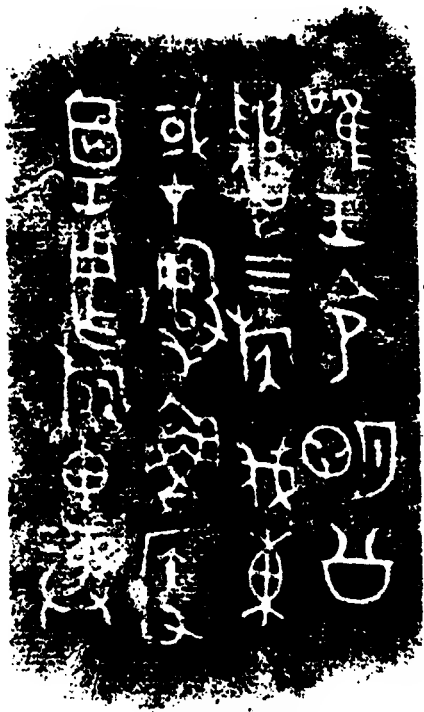 唯王令明公
遣三族伐東
或才魯侯又
工用乍旅彝